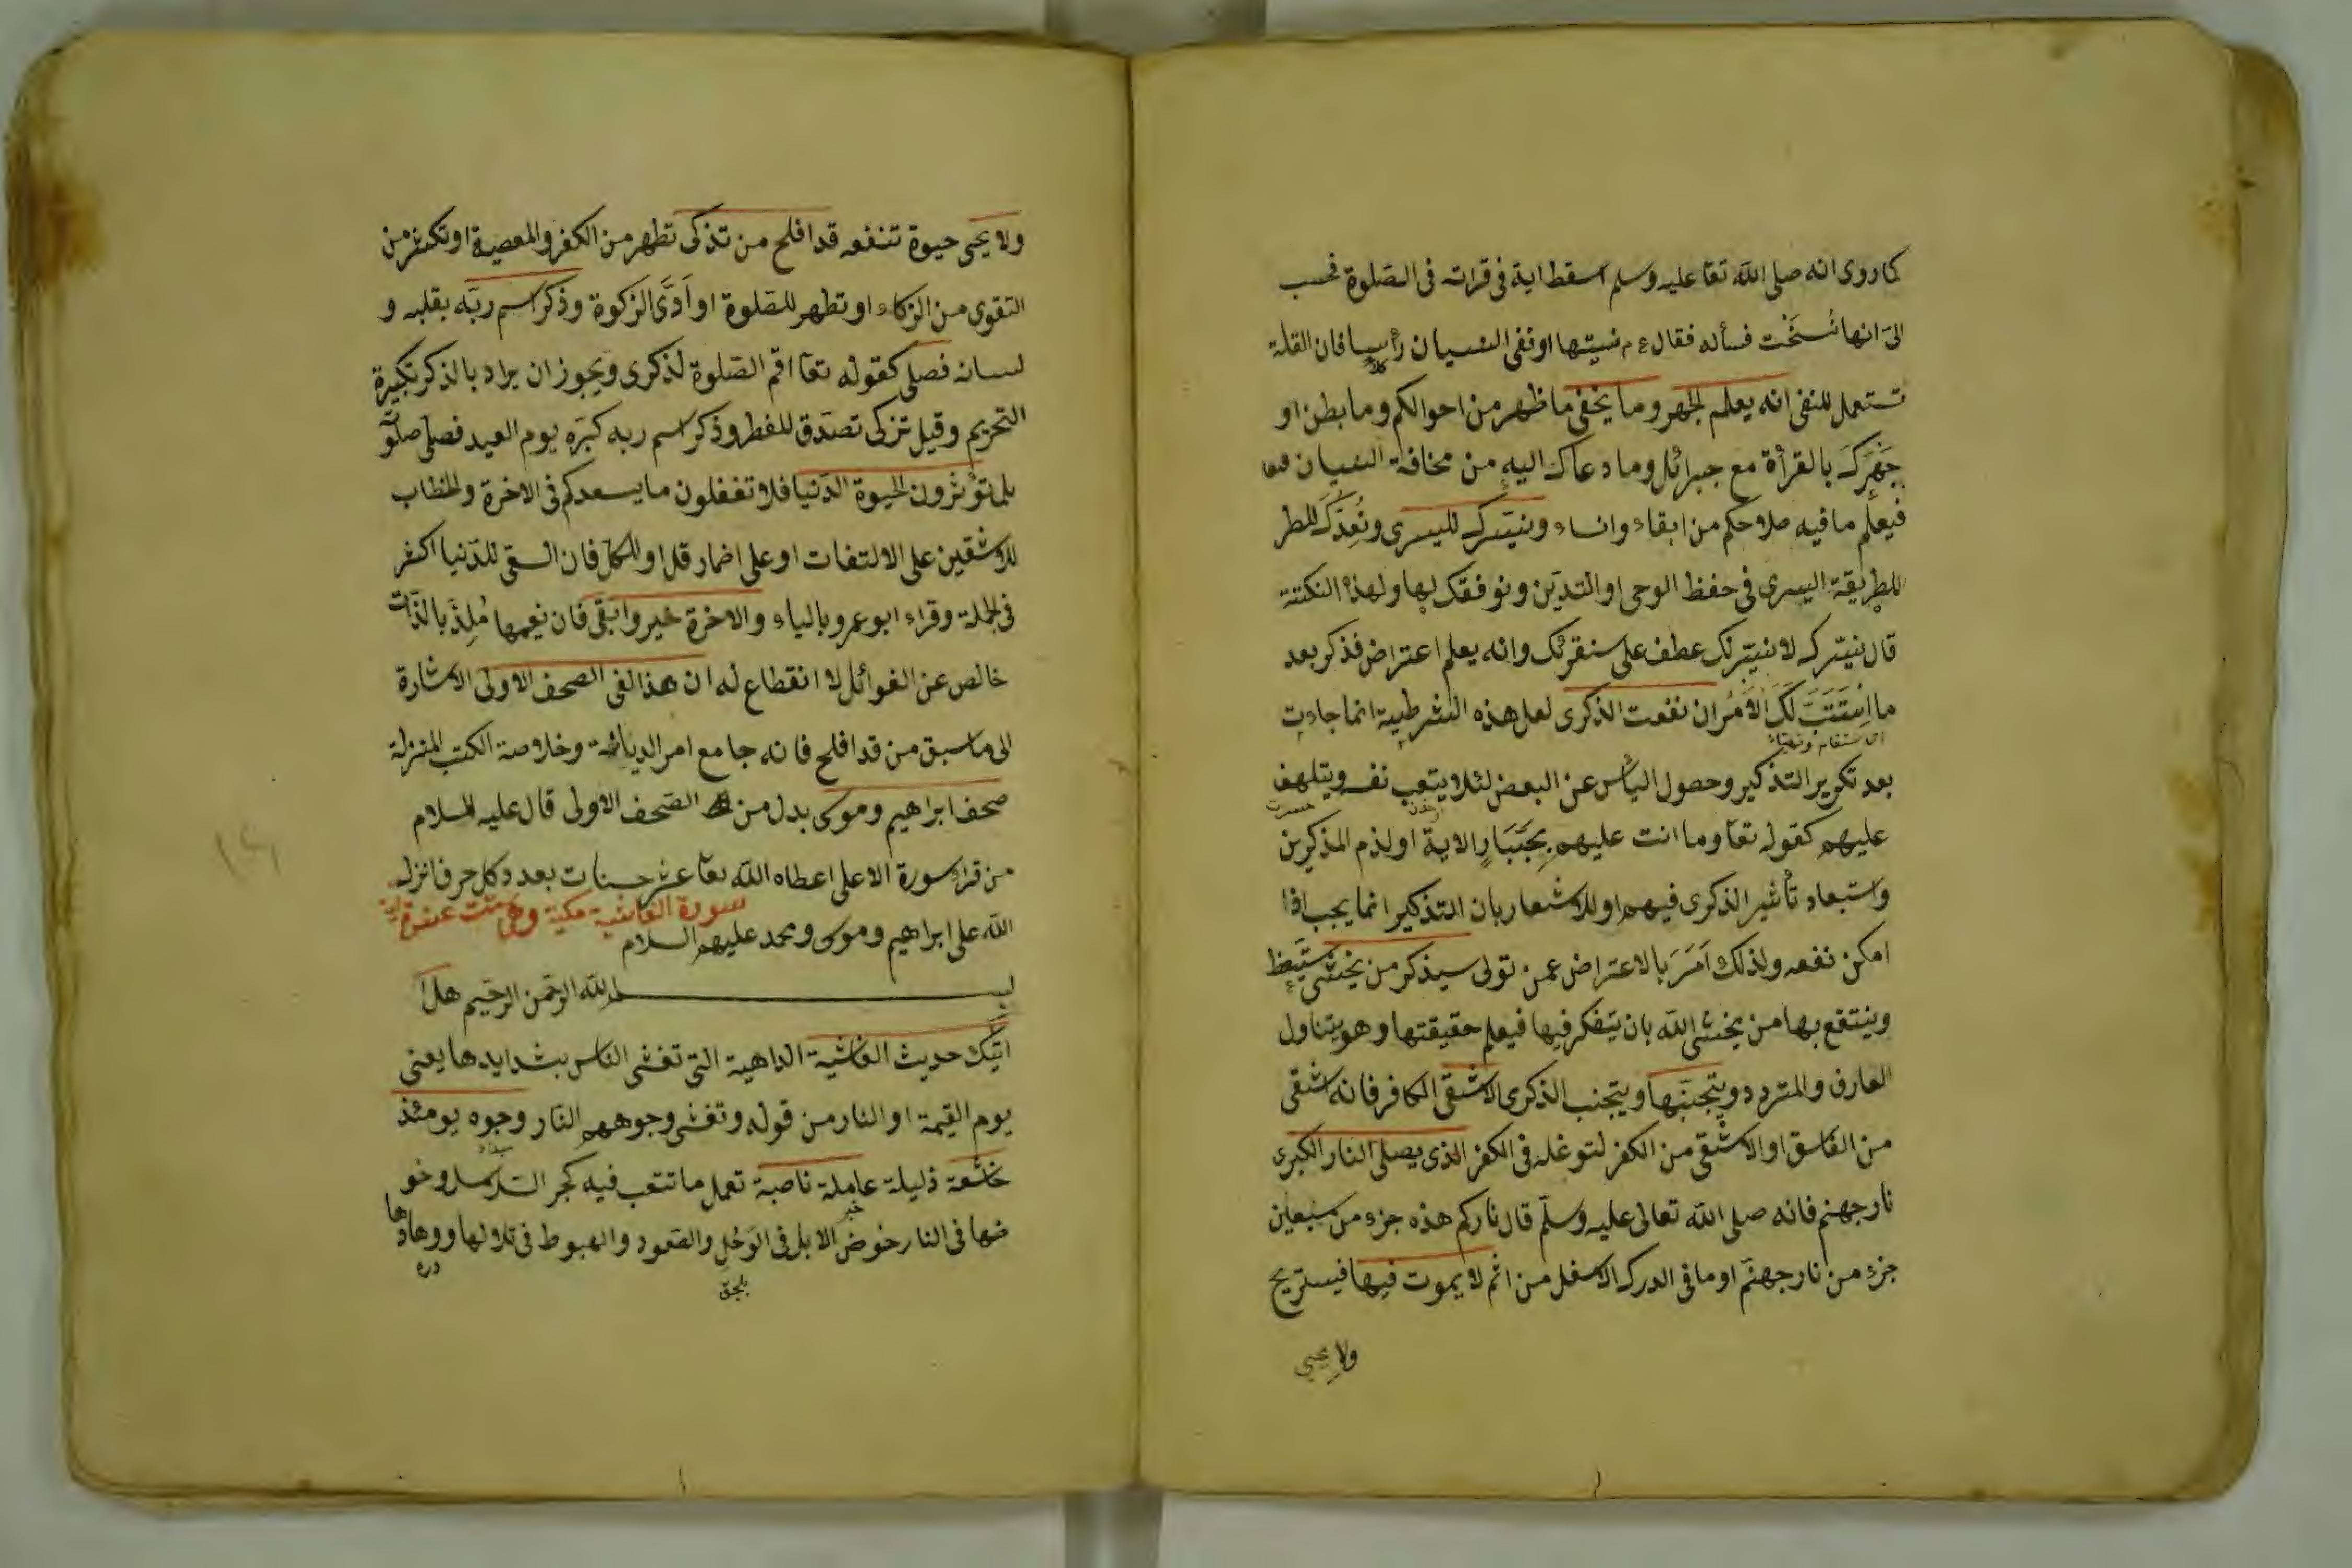 كما روى انه صلى الله تعا عليه وسلم اسقط اية فى قراته فى الصلوة فحسب
الىّ انها نُسخَت فسأله فقال ع م نسيتها او نفى النسيان رأسا فان القلة
تستعمل للنفى انه يعلم الجهر وما يخفى ما ظهر من احوالكم وما بطن او
جَهْرَكَ بالقرأة مع جبرائل وما دعاك اليه من مخافة النسيان
فيعلم ما فيه صلاحكم من ابقاء وانساء ونيسّرك لليسرى ونُعِدّك للطر
للطريقة اليسرى فى حفظ الوحى او التديّن ونوفقك لها ولهذه النكتة
قال نيسّرك لا نيسّر لك عطف على سنقرئك وانه يعلم اعتراض فذكر بعد
ما استَتَبَّ لَكَ الاَمْرُ ان نفعت الذكرى لعل هذه الشرطية انما جاءت
اى استقام وتهيّاء
بعد تكرير التذكير وحصول اليأس عن البعض لئلا يتعب نفسه ويتلهف
حسرت
عليهم كقوله تعا وما انت عليهم بِجَبّارٍ الاية او لذم المذكرين
واستبعاد تأثير الذكرى فيهم او للاشعار بان التذكير انما يجب اذا
امكن نفعه ولذلك اَمَرَ بالاعتراض عمن تولى سيذكر من يخشى سيتعظ
وينتفع بها من يخشى الله بان يتفكر فيها فيعلم حقيقتها وهو يتناول
العارف والمتردد ويتجنبّها ويتجنب الذكرى الاشقى الكافر فانه اشقى
من الفاسق او الاشقى من الكفر لتوغله فى الكفر الذى يصلى النار الكبرى
نار جهنم فانه صلى الله تعالى عليه وسلّم قال ناركم هذه جزء من سبعين
جزء من نار جهنّم او ما فى الدرك الاسفل من اثم لا يموت فيها فيستريح
ولا يحيى
ولا يحيى حيوة تنفعه قد افلح من تذكى تطهر من الكفر والمعصية او تكثر من
التقوى من الزكاء او تطهر للصلوة او اَدَّى الزكوة وذكر اسم ربّه بقلبه و
لسانه فصلى كقوله تعا اقم الصّلوة لذكرى ويجوز ان يراد بالذكر تكبيرة
التحريم وقيل تزكى تصدّق للفطر وذكر اسم ربه كبّره يوم العيد فصلّى صلوّ
بل تؤثرون الحيوة الدّنيا فلا تفعلون ما يسعدكم فى الاخرة والخطاب
للاشقين على الالتفات او على اضمار قل او للكل فان السعى للدّنيا اكثر
فى الجملة وقراء ابو عمرو بالياء والاخرة خير وابقى فان نعيمها مُلِذّ بالذّات
خالص عن الغوائل لا انقطاع له ان هذا لفى الصحف الاولى الاشارة
الى ما سبق من قد افلح فانه جامع امر الديانة وخلاصة الكتب المنزلة
صحف ابراهيم وموسى بدل من الصّحف الاولى قال عليه السلام
من قراء سورة الاعلى اعطاه الله تعا عشر حسنات بعدد كل حرف انزله
الله على ابراهيم وموسى ومحمد عليهم السلام
سورة الغاشية مكية وهى ست عشرة اية
بسم الله الرّحمن الرّحيم هل
اتيك حديث الغاشية الداهية التى تغشى الناس بشدايدها يعنى
يوم القيمة او النار من قوله وتغشى وجوههم النّار وجوه يومئذ
خاشعة ذليلة عاملة ناصبة تعمل ما تتعب فيه كجر السلاسل وخو
ضها فى النار خوض الابل فى الوَحْلِ والصّعود والهبوط فى تلالها ووهادها
خبر
دره
بلجق